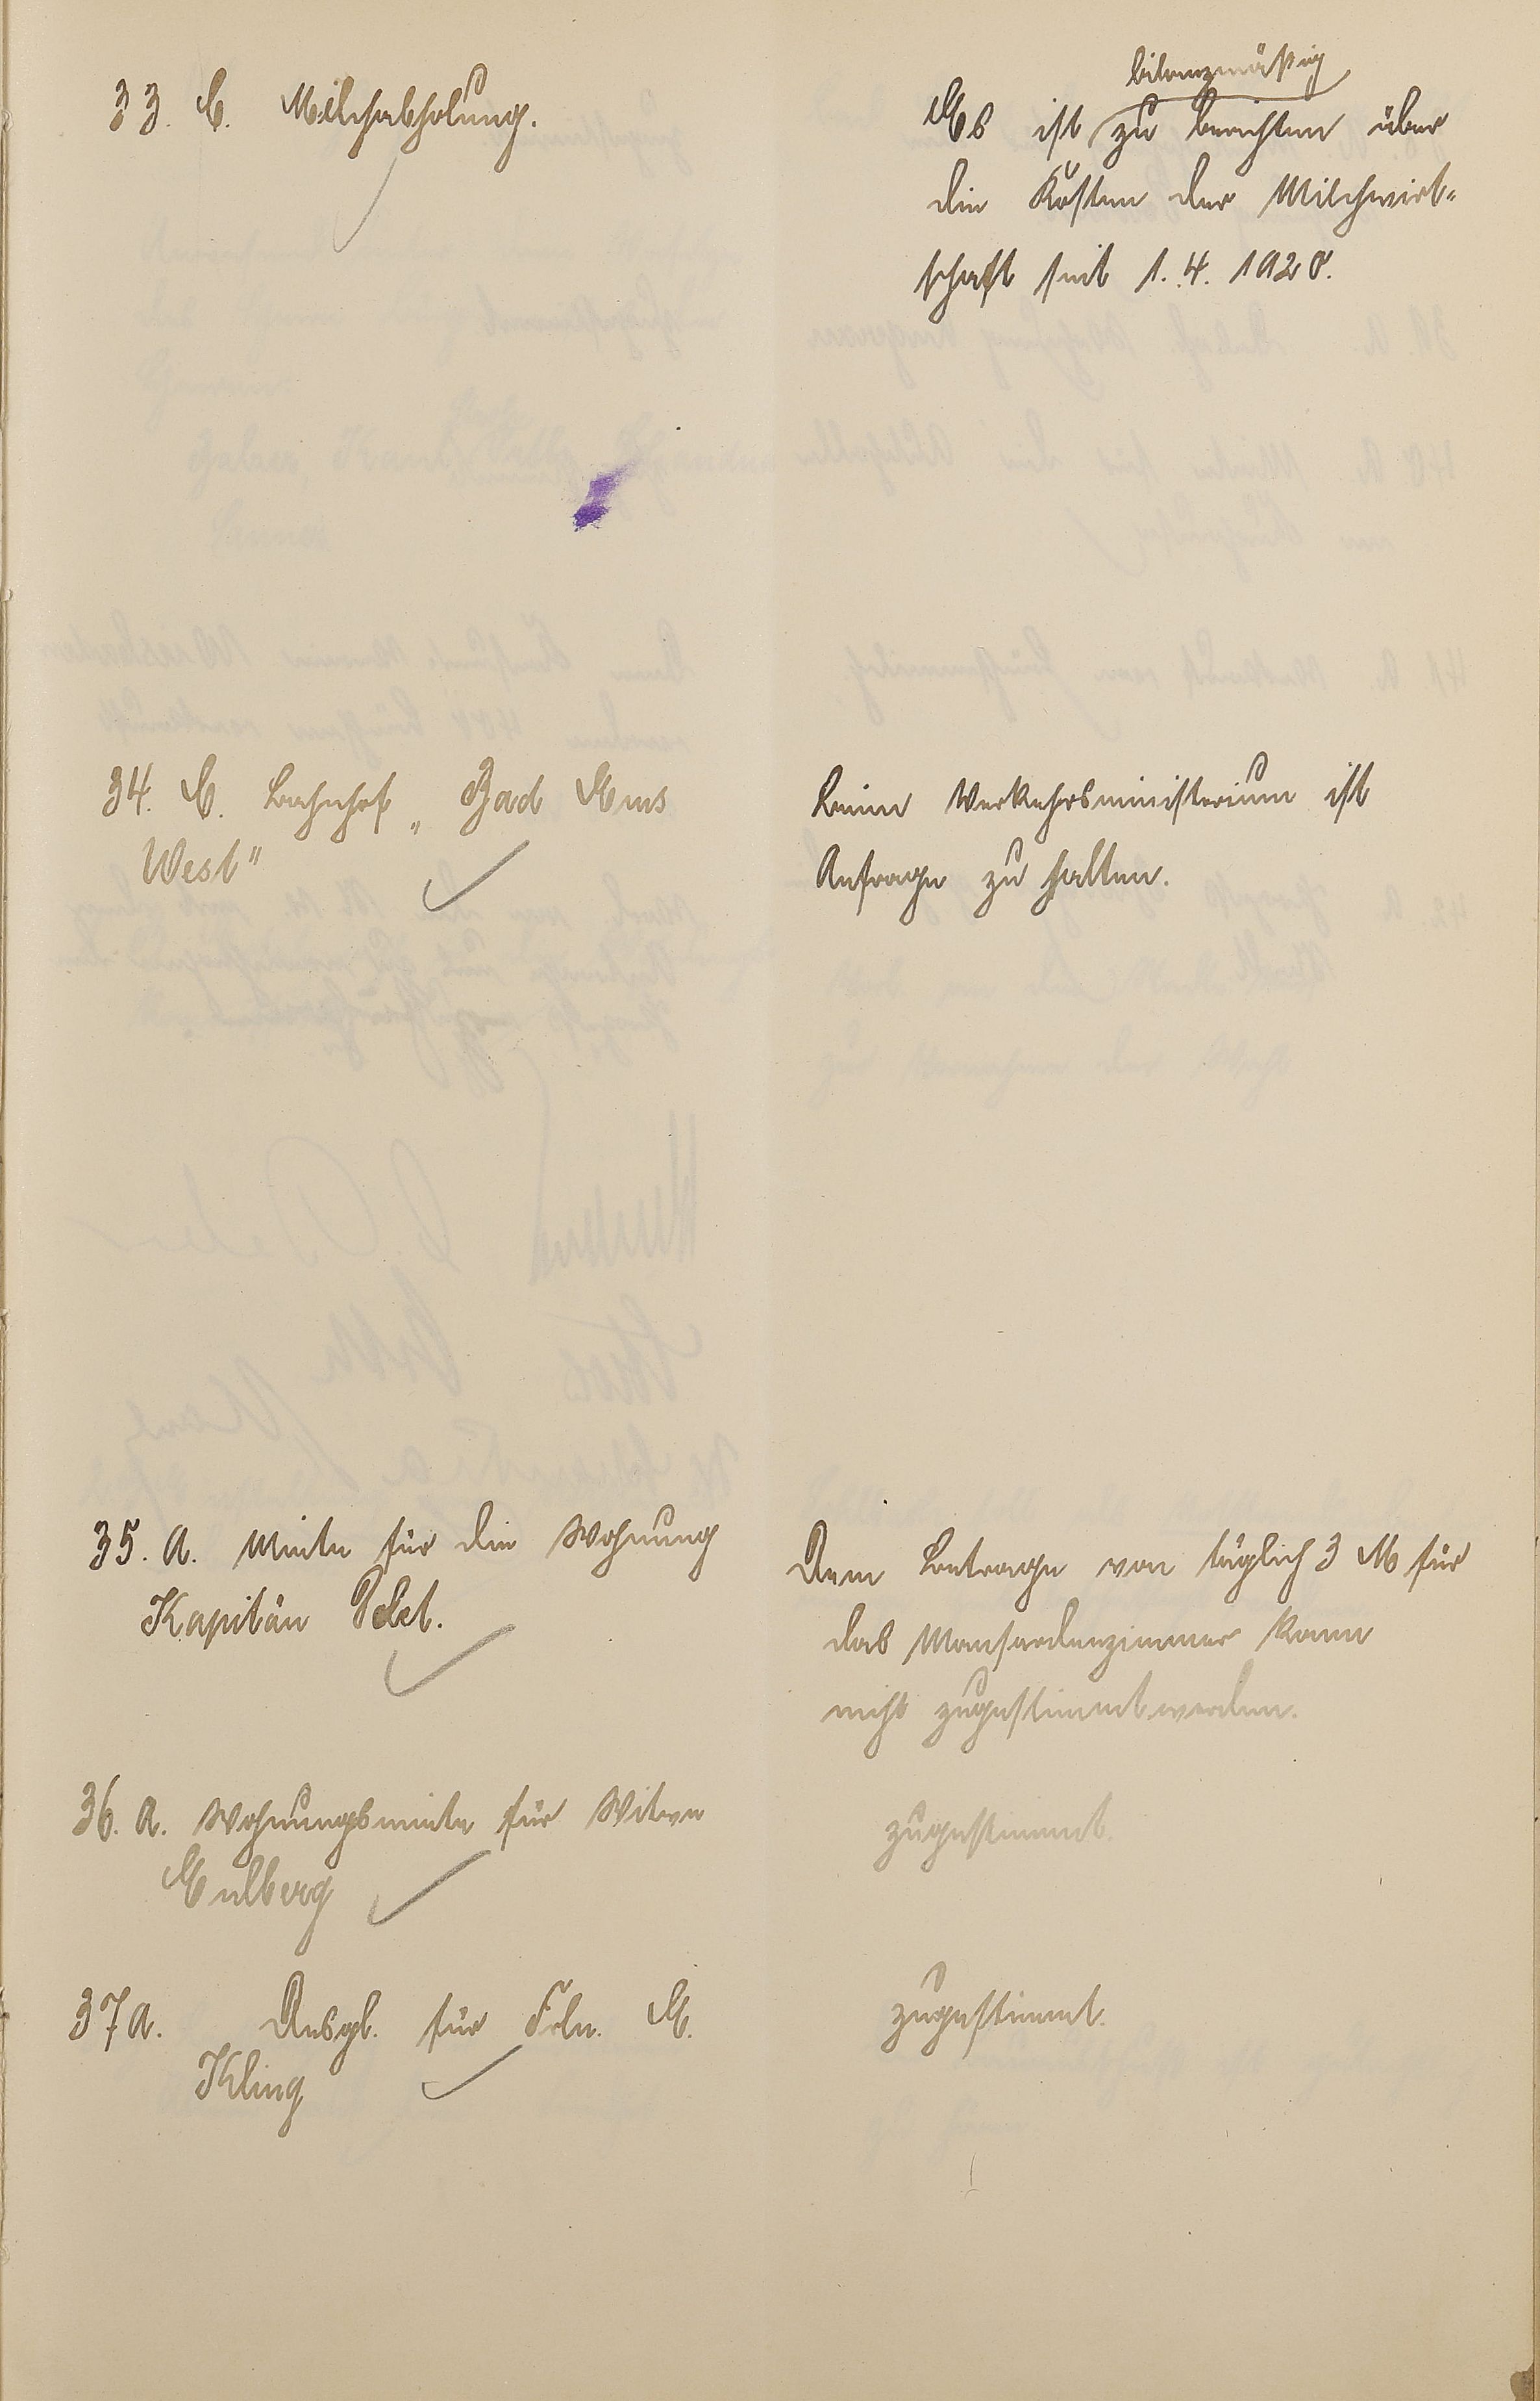 33. C. Milchabholung.
bilanzmäßig
Es ist zu berichten über
die Kosten der Milchwirt-
schaft seit 1. 4. 1920.
34. C. Bahnhof „Bad Ems
West"
Beim Verkehrsministerium ist
Anfrage zu halten.
35. A. Miete für die Wohnung
Kapitän
Dem Betrage von täglich 3 M für
das Mansardenzimmer kann
nicht zugestimmt werden.
36. A. Wohnungsmiete für Witwe
Eulberg
zugestimmt.
37 A. Desgl. für Frln. E.
Kling
zugestimmt.